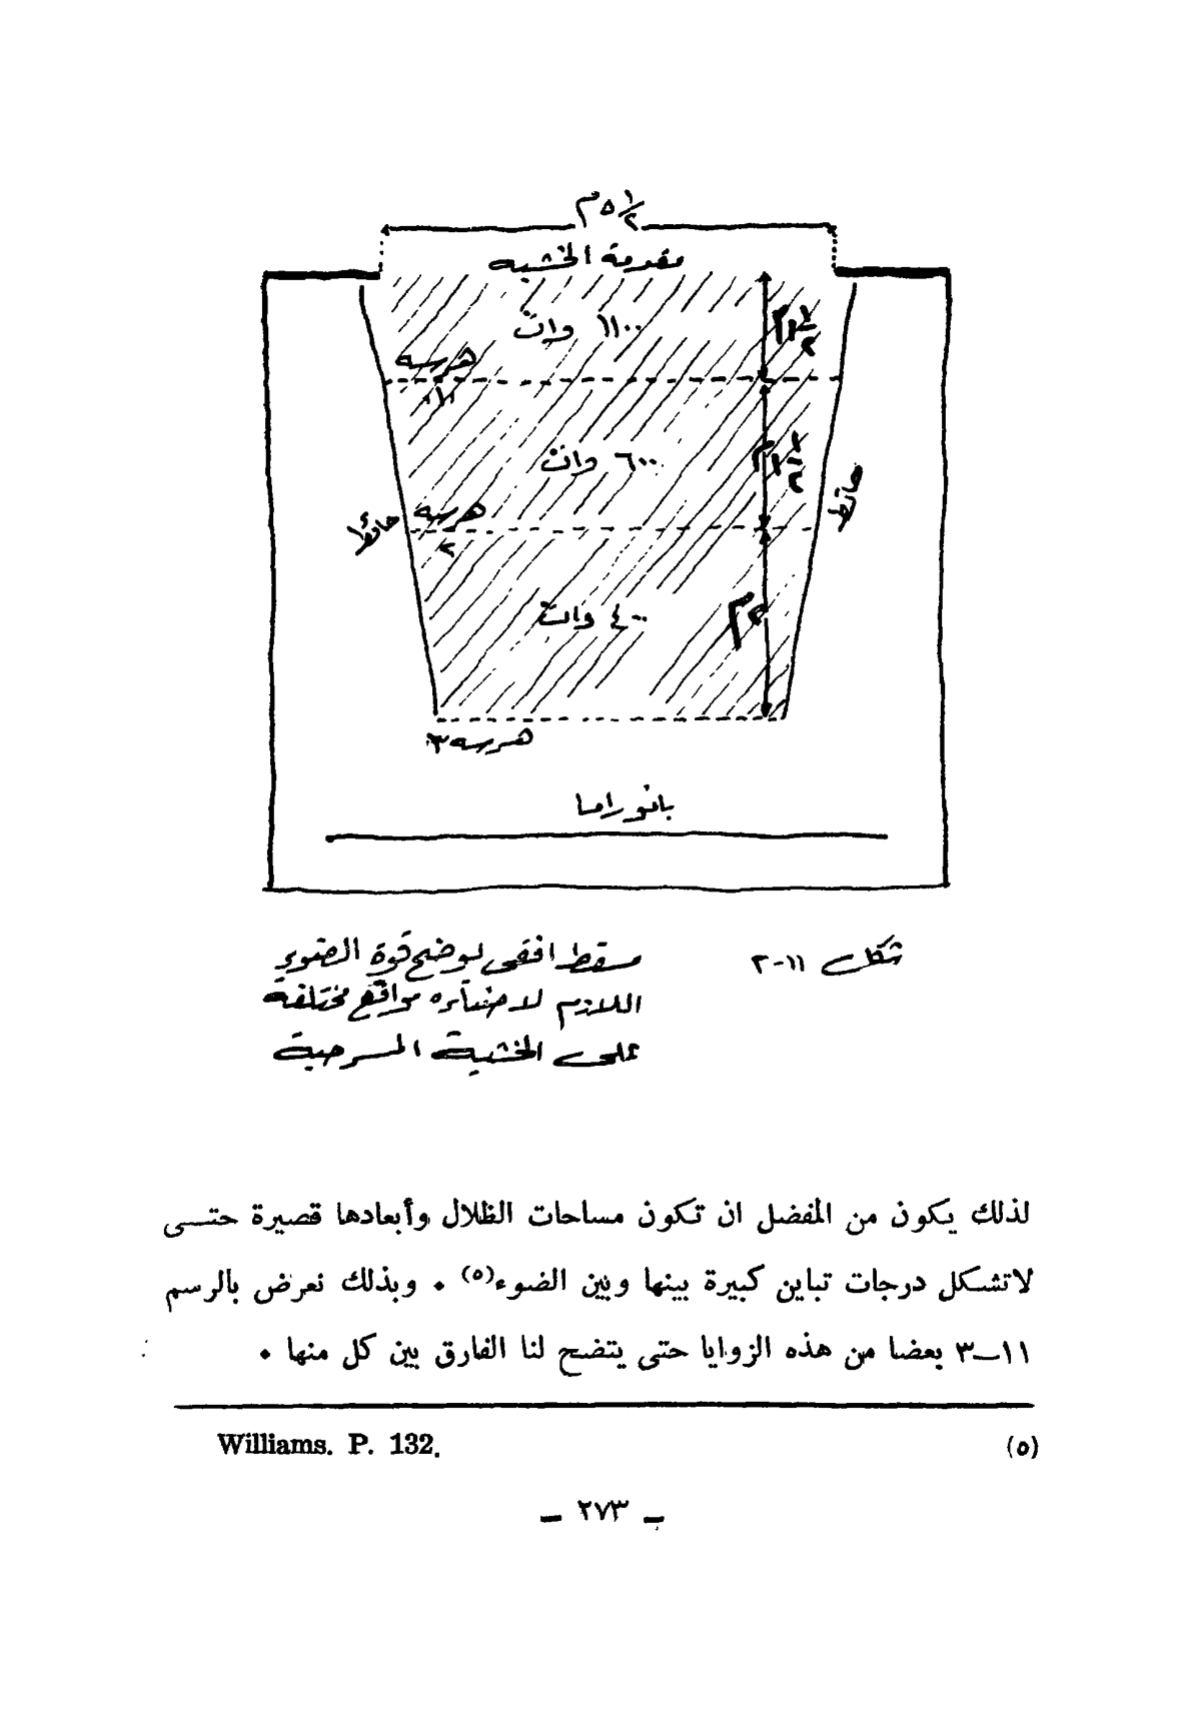 ٥ ١/٢ م
مقدمة الخشبه
١١٠٠ وات
١ ١/٢ م
هرسه
١
٦٠٠ وات
١ ١/٢ م
حائط
هرسه
٢
حائط
٤٠٠ وات
٢م
هرسه ٣
بانوراما
شكل ١١-٢
مسقط افقى يوضح قوة الضوء
اللازم لاضاءه مواقع مختلفة
على الخشبة المسرحية
لذلك يكون من المفضل ان تكون مساحات الظلال وأبعادها قصيرة حتــى
لاتشكل درجات تباين كبيرة بينها وبين الضوء(٥) ٠ وبذلك نعرض بالرسم
١١ــ٣ بعضا من هذه الزوايا حتى يتضح لنا الفارق بين كل منها ٠
(٥) Williams. P. 132.
ــ ٢٧٣ ــ